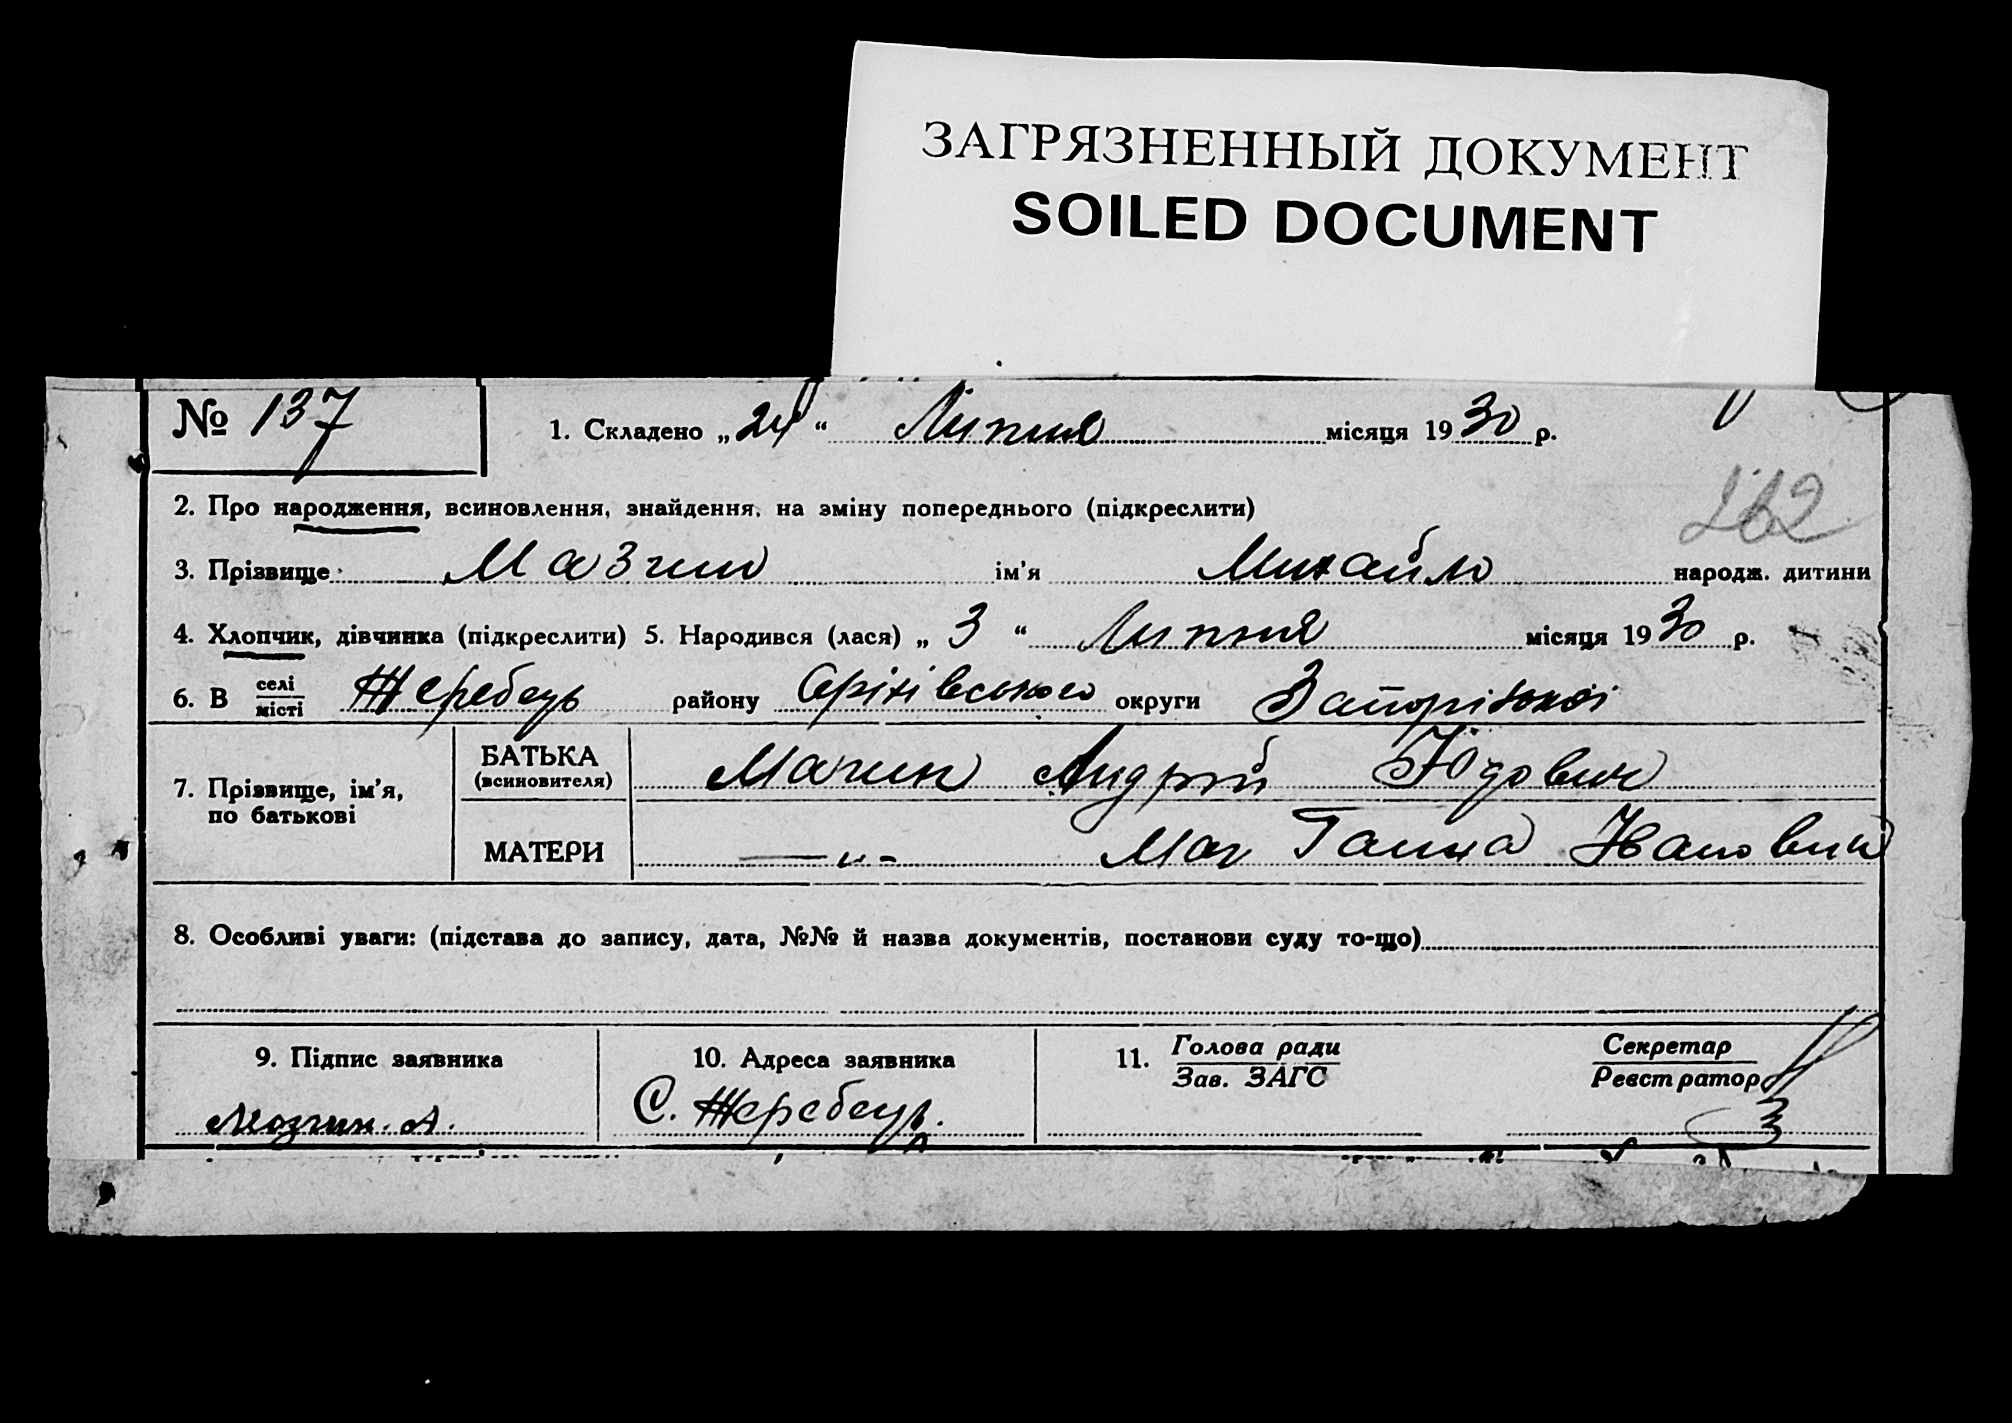 ЗАГРЯЗНЕННЫЙ ДОКУМЕНТ
SOILED DOCUMENT
№ 137
1. Складено „24“ Липня місяця 1930 р.
262
2. Про народження, всиновлення, знайдення, на зміну попереднього (підкреслити)
3. Прізвище Мазгин ім'я Михайло народж. дитини
4. Хлопчик, дівчинка (підкреслити) 5. Народився (лася) „3“ Липня місяця 1930 р.
6. В селі/місті Жеребець району Оріхівського округи Запорізької
7. Прізвище, ім'я, по батькові
БАТЬКА (всиновителя) Андрій Юдович
МАТЕРИ —„- Ганна
8. Особливі уваги: (підстава до запису, дата, №№ й назва документів, постанови суду то-що)
9. Підпис заявника
10. Адреса заявника
С. Жеребець
11. Голова ради/Зав. ЗАГС
Секретар/Реєстратор